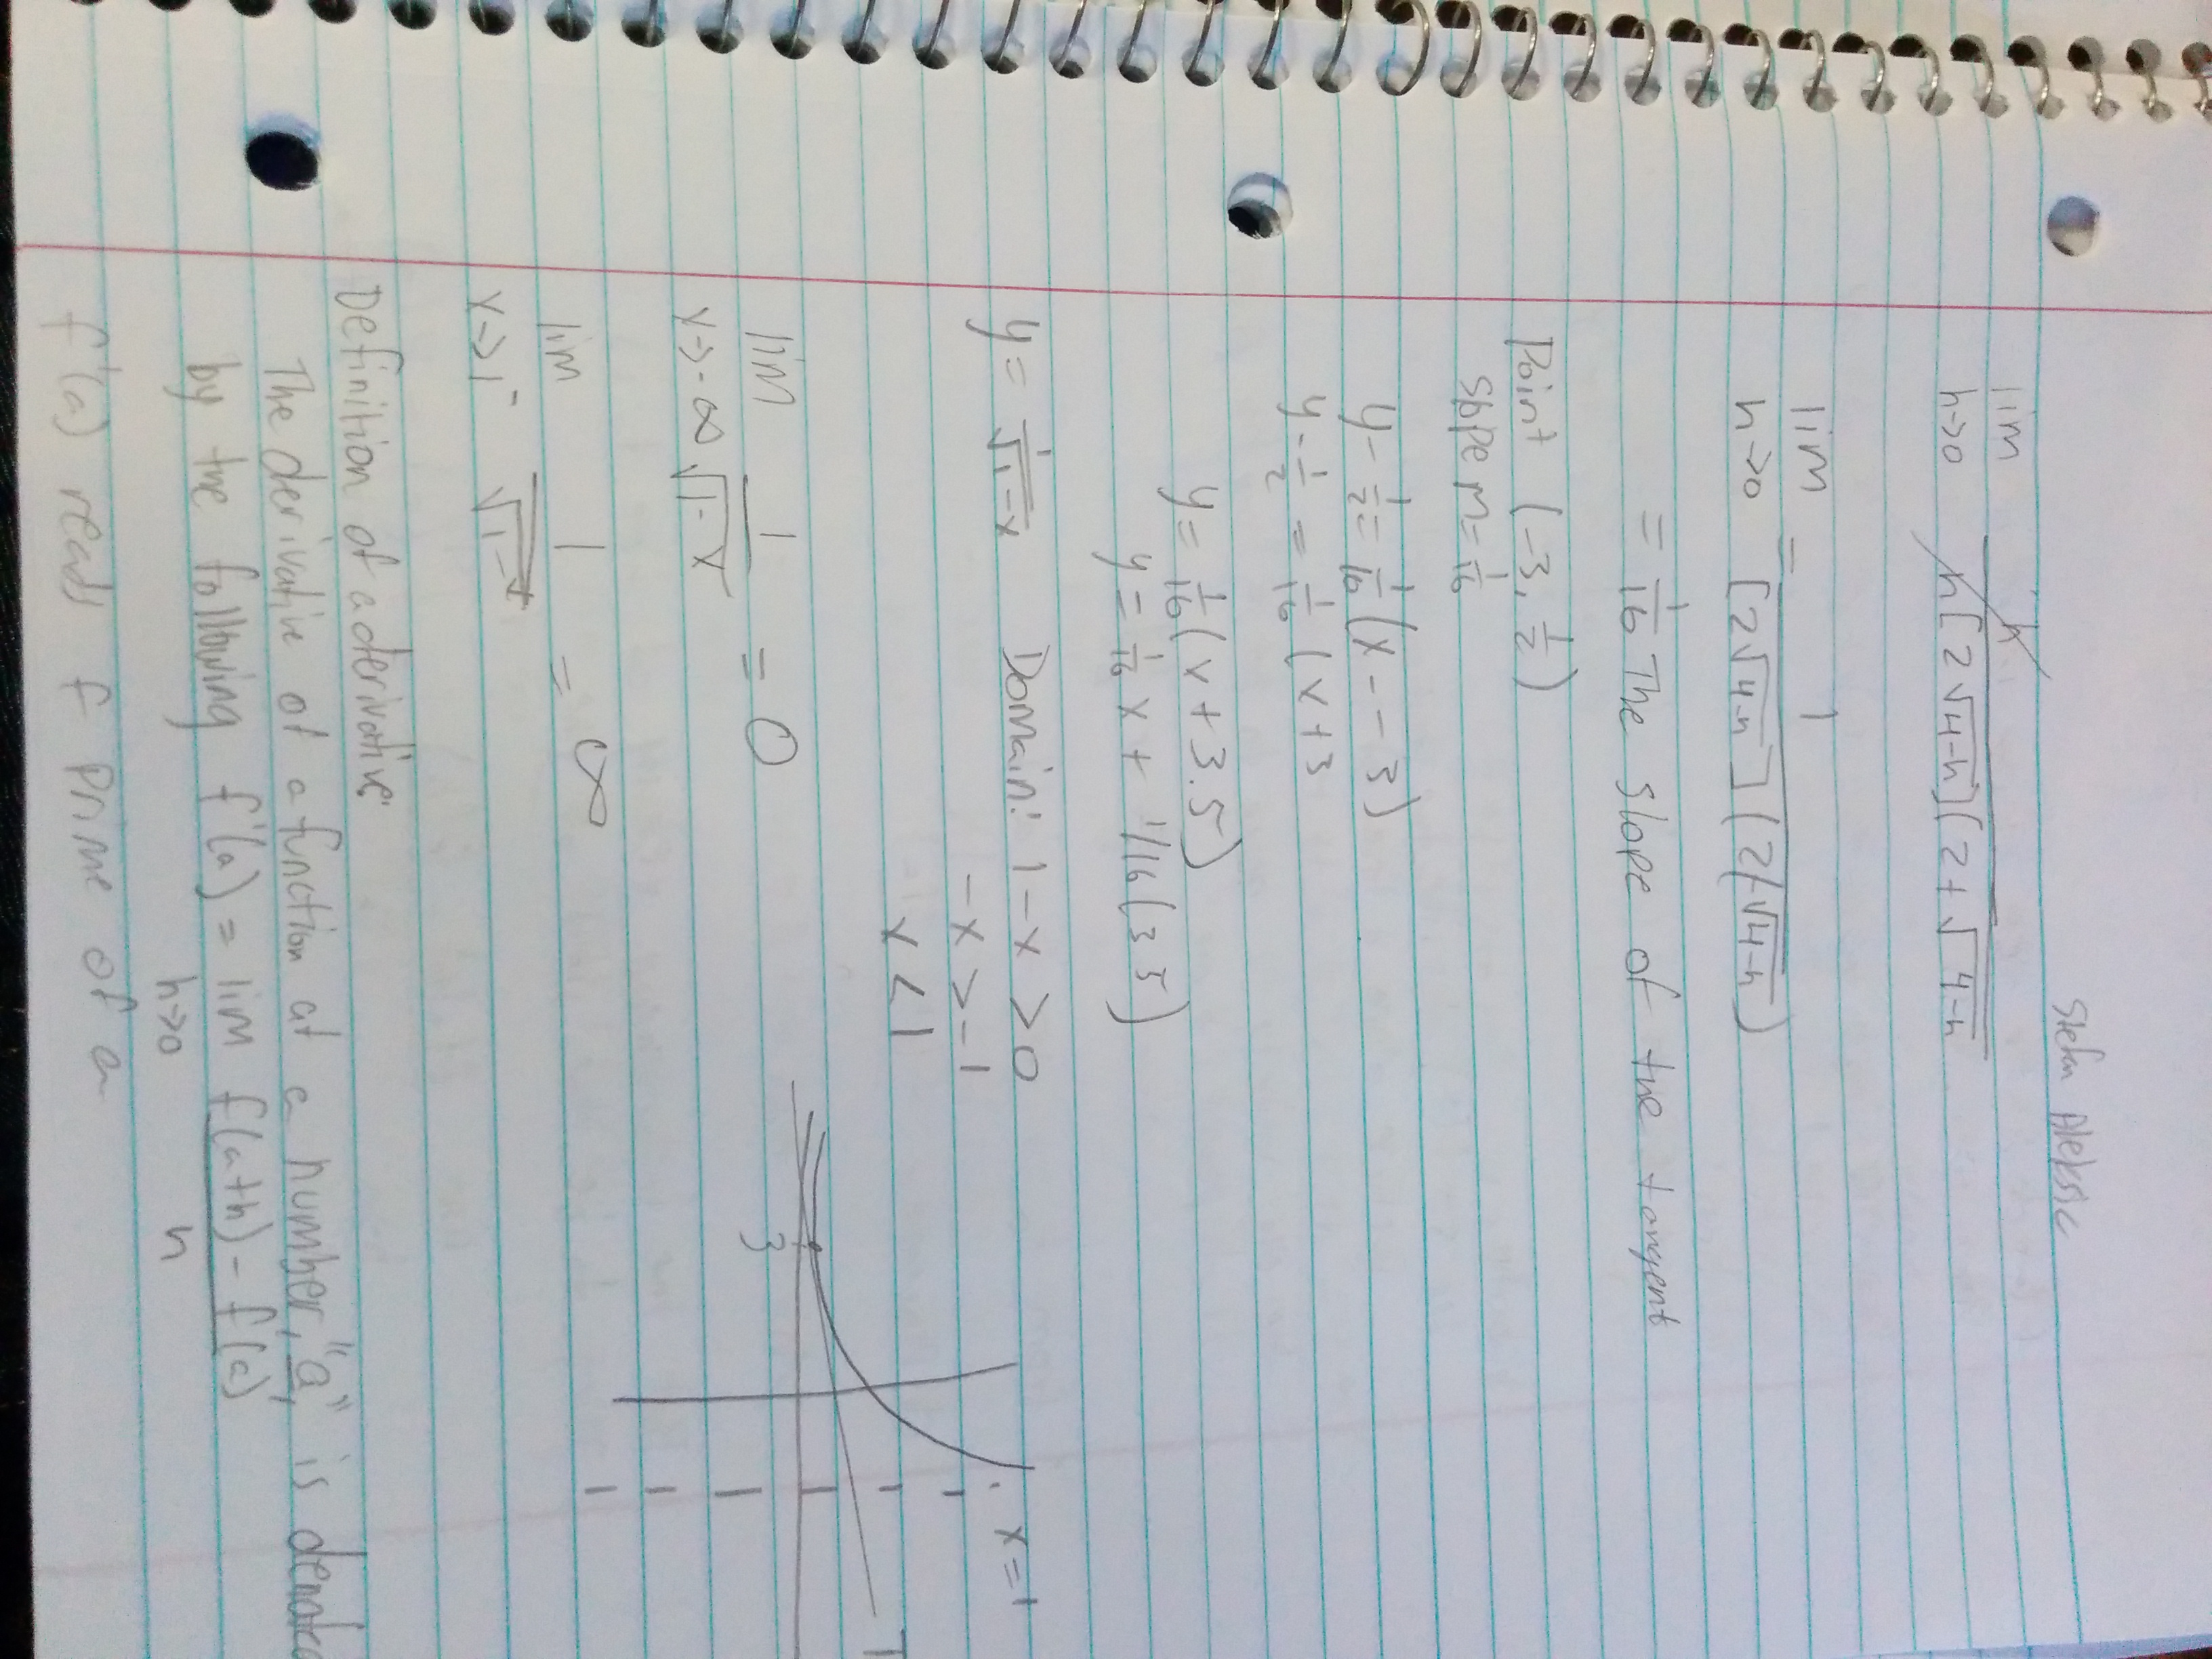 Stefan Aleksic
lim h
h→0 h[2√4-h](2+√4-h)
= lim 1
h→0 [2√4-h](2+√4-h)
= 1/16 The slope of the tangent
Point (-3, 1/2)
slope m=1/16
y-1/2=1/16(x--3)
y-1/2 = 1/16(x+3
y=1/16(x+3.5)
y=1/16x+ 1/16(35)
y=1/√1-x Domain: 1-x>0
-x>-1
x<1
x=1
lim 1 = 0
x→-∞ √1-x
3
lim 1 = ∞
x→1⁻ √1-x
Definition of a derivative:
The derivative of a function at a number, "a", is denoted
by the following f'(a) = lim f(a+h)-f(a)
h→0 h
f'(a) reads f prime of a